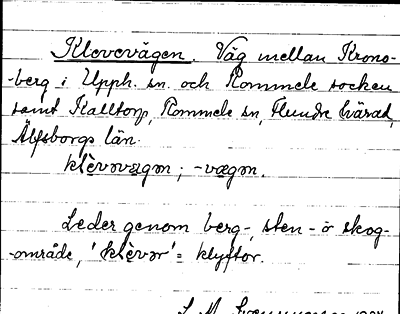 Klevevägen. Väg mellan Krono-
-berg i Upph. sn. och Rommele socken
samt Kalltorp, Rommele sn, Flundre härad,
Älfsborgs län.
klèvəvægən; -vægən.
Leder genom berg-, sten- o skog-
-område, 'klèvər' = klyftor.